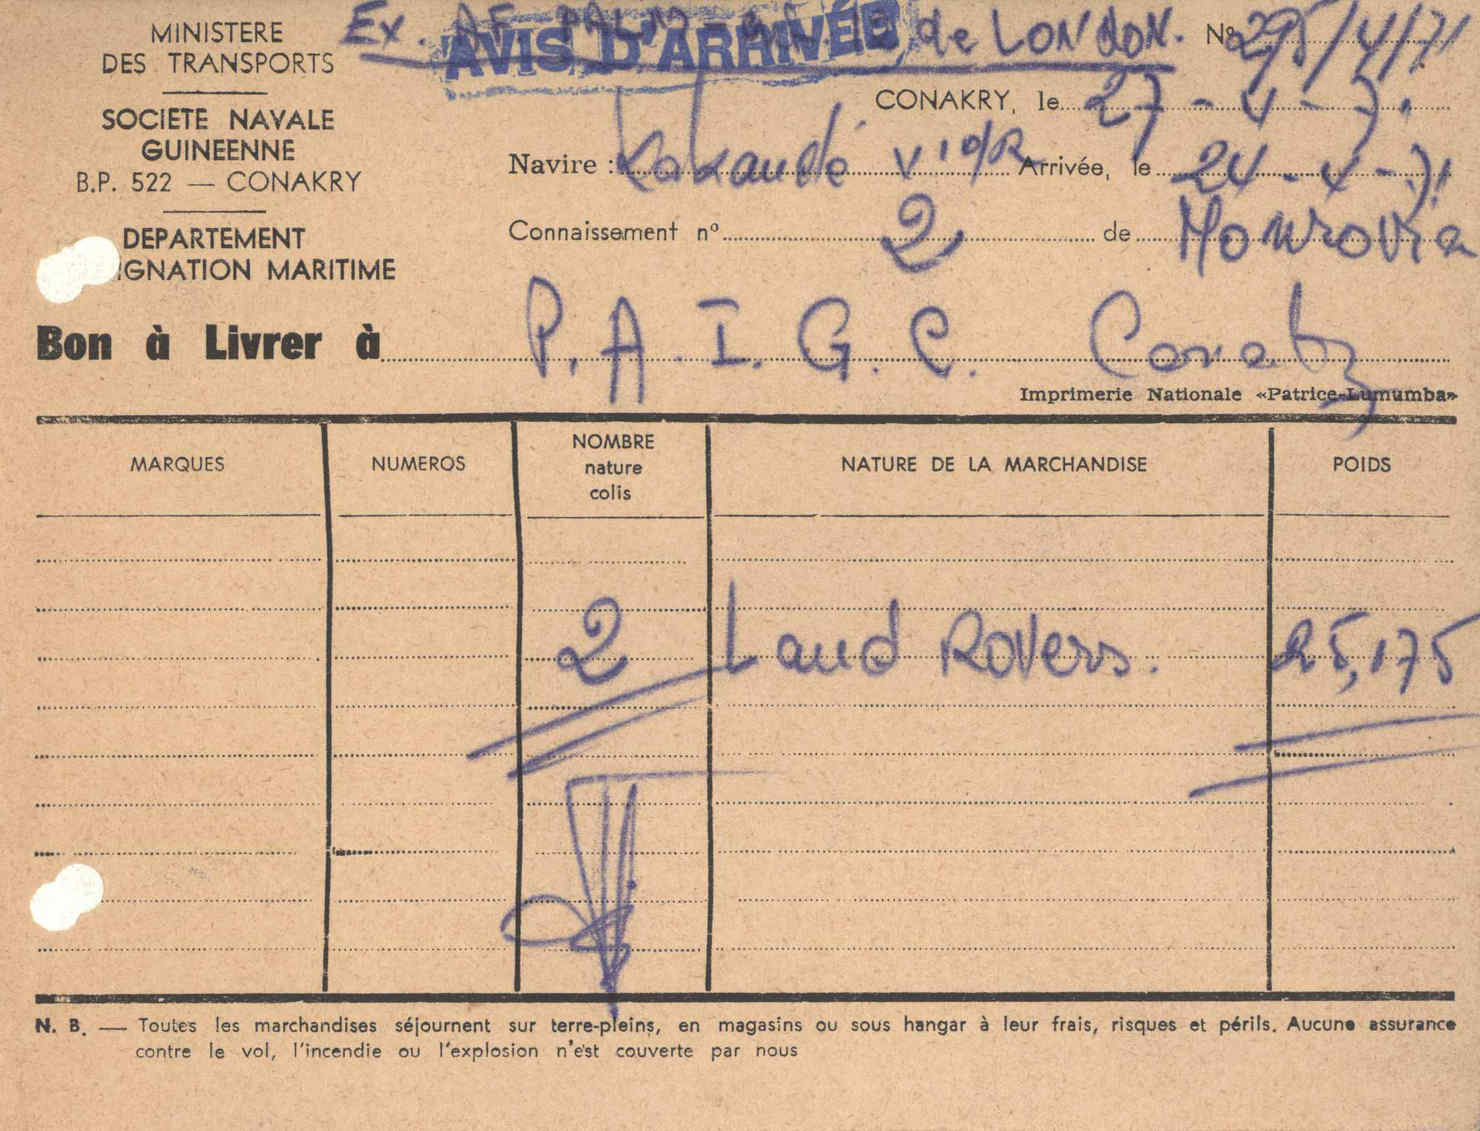 MINISTERE
DES TRANSPORTS
SOCIETE NAVALE
GUINEENNE
B.P. 522 — CONAKRY
DEPARTEMENT
IGNATION MARITIME
Ex. AF PALM de LONDON.
AVIS D'ARRIVÉE
Nº 295/4/71
CONAKRY, le 27-4-71
Navire : Kakandé V'10/R Arrivée, le 24-4-71
Connaissement nº 2 de Monrovia
Bon à Livrer à P.A.I.G.C. Conakry
Imprimerie Nationale «Patrice-Lumumba»
MARQUES NUMEROS NOMBRE nature colis NATURE DE LA MARCHANDISE POIDS
2 Land Rovers. 25,175
N. B. — Toutes les marchandises séjournent sur terre-pleins, en magasins ou sous hangar à leur frais, risques et périls. Aucune assurance
contre le vol, l'incendie ou l'explosion n'est couverte par nous